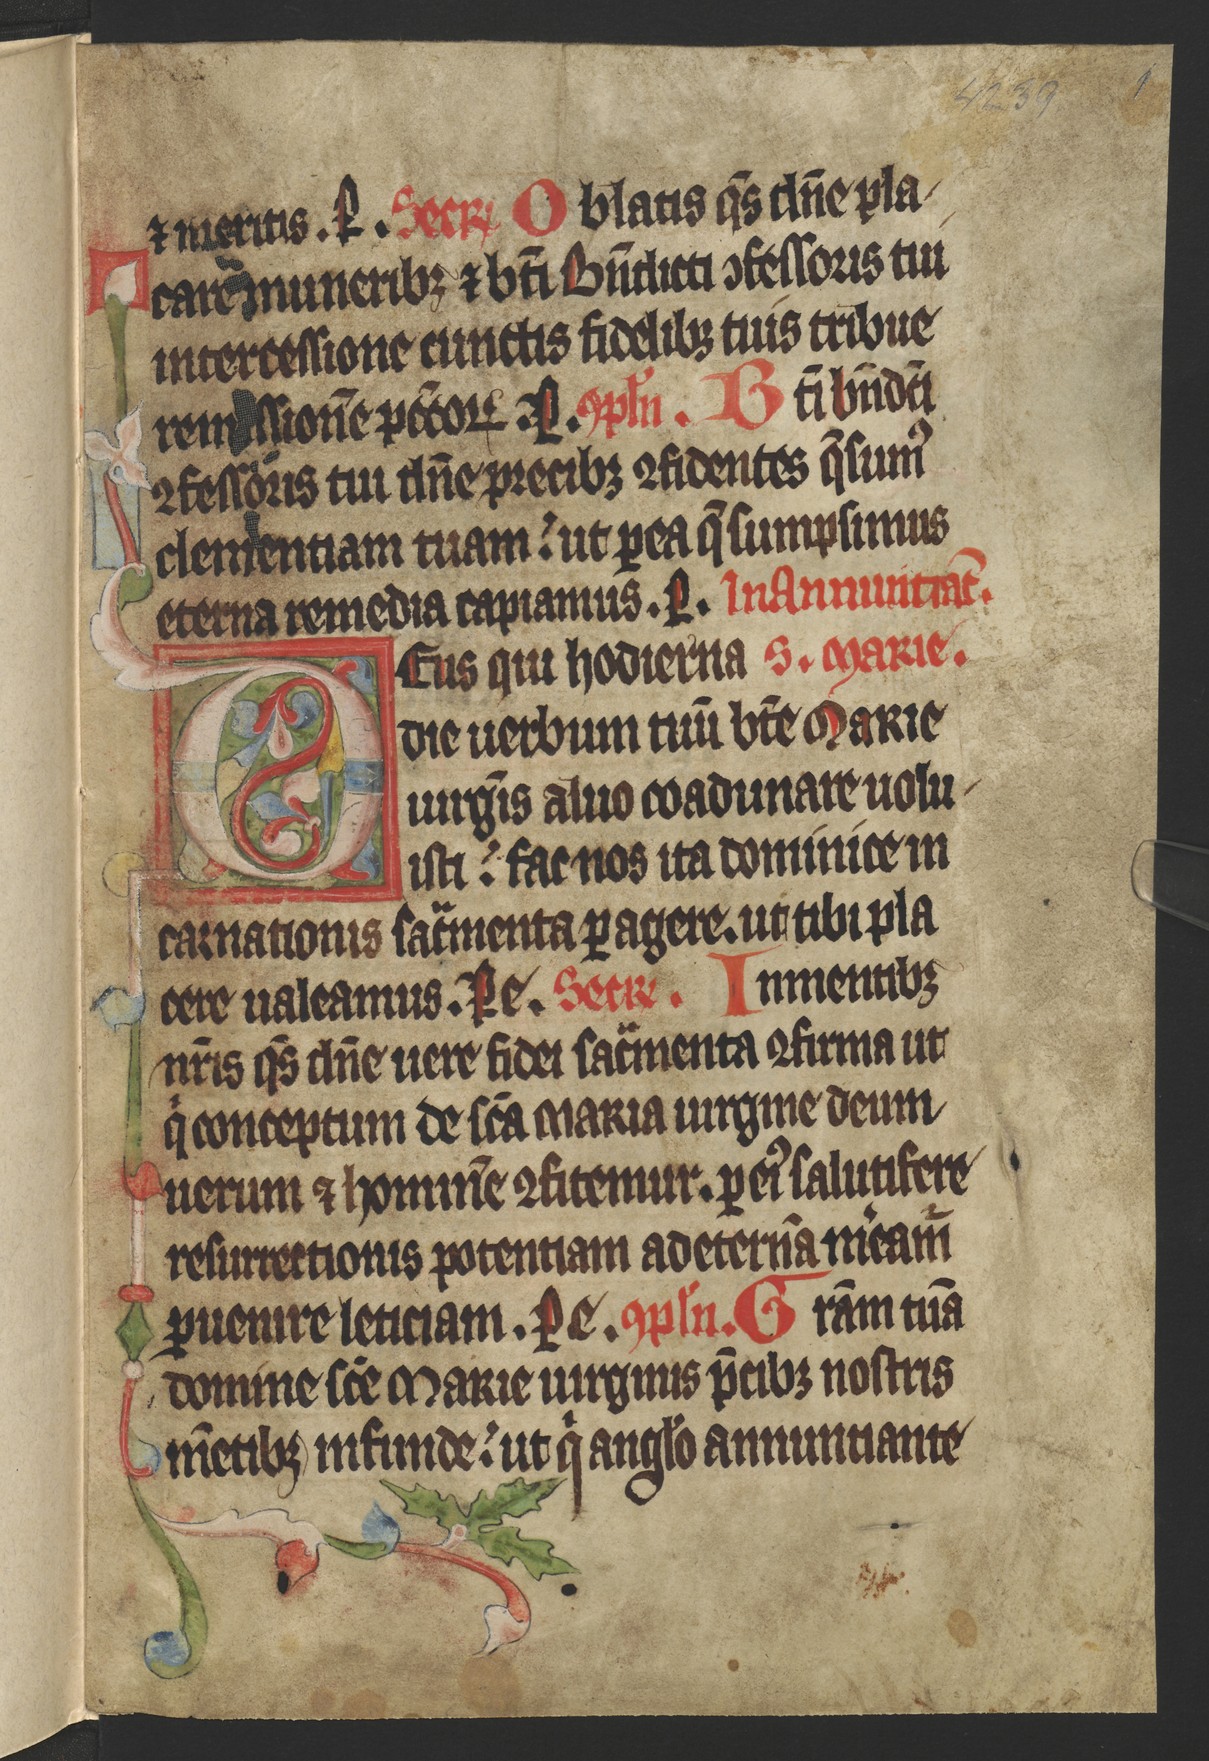 4239 1
⁊ meritis. P. Secrͬ Oblatis q̄s dn̄e pla
carē muneribꝫ ⁊ bt̄i Bn̄dicti ꝯfessoris tui
intercessione cunctis fidelibꝫ tuis tribue
remissionē pctōꝝ. P. ꝯpln̄. Bt̄i bn̄dc̄i
ꝯfessoris tui dn̄e precibꝫ ꝯfidentes q̄sumꝰ
clementiam tuam: ut ꝑ ea q̄ sumpsimus
eterna remedia capiamus. P. In Annuntiat̄.
DEus qui hodierna S. Marie.
die uerbum tuū bt̄e Marie
uirgīs aluo coadunare uolu
isti: fac nos ita dominice in
carnationis sac̄menta ꝑagere. ut tibi pla
cere ualeamus. Pe. Secre. In mentibꝫ
nr̄is q̄s dn̄e uere fidei sac̄menta ꝯfirma ut
qͥ conceptum de sc̄a Maria uirgine deum
uerum ⁊ hominē ꝯfitemur. ꝑ eiꝰ salutifere
resurrectionis potentiam ad eternā m̄eam̄
ꝑuenire leticiam. Pe. ꝯpln̄. Grām tuā
domine sc̄e Marie uirginis p̄cibꝫ nostris
mētibꝫ infunde: ut qͥ angl̄o annuntiante